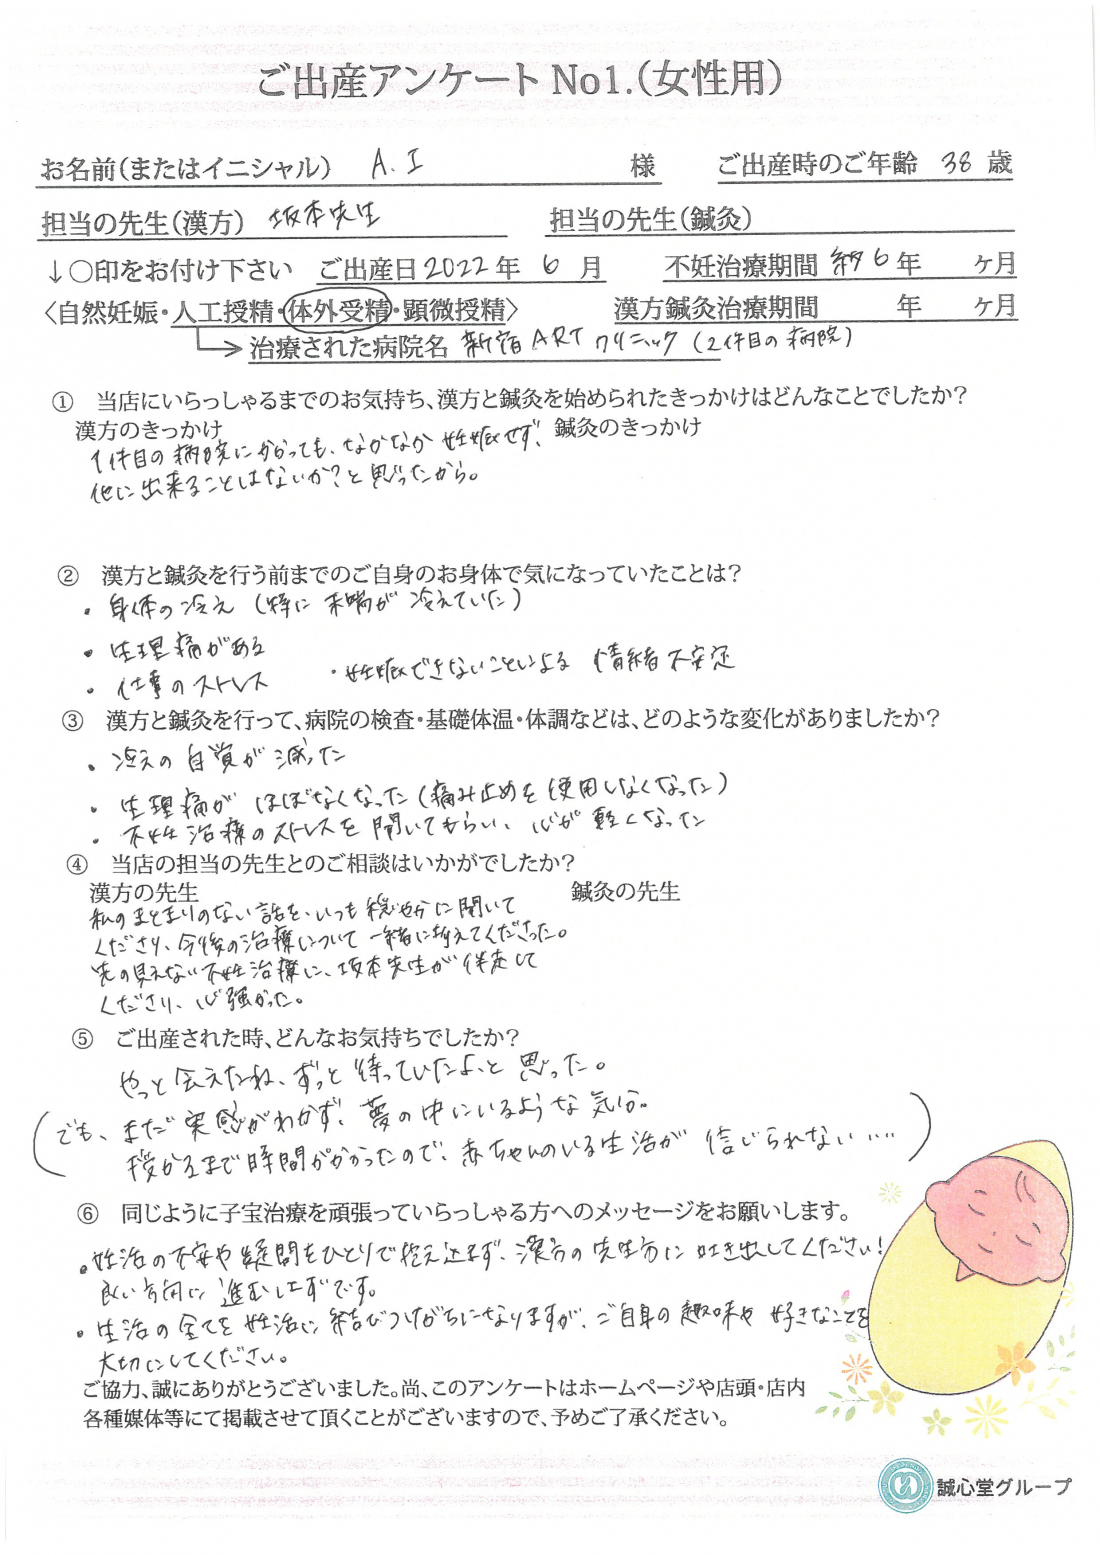 ご出産アンケート No1.（女性用）
お名前（またはイニシャル） A.I 様 ご出産時のご年齢 38 歳
担当の先生（漢方） 坂本先生 担当の先生（鍼灸）
↓○印をお付け下さい ご出産日 2022 年 6 月 不妊治療期間 約6 年 ヶ月
〈自然妊娠・人工授精・体外受精・顕微授精〉 漢方鍼灸治療期間 年 ヶ月
治療された病院名 新宿ART クリニック （2件目の病院）
① 当店にいらっしゃるまでのお気持ち、漢方と鍼灸を始められたきっかけはどんなことでしたか？
漢方のきっかけ 鍼灸のきっかけ
1件目の病院にかかっても、なかなか妊娠せず、
他に出来ることはないか？と思ったから。
② 漢方と鍼灸を行う前までのご自身のお身体で気になっていたことは？
・身体の冷え （特に末端が冷えていた）
・生理痛がある
・仕事のストレス ・妊娠できないことによる 情緒不安定
③ 漢方と鍼灸を行って、病院の検査・基礎体温・体調などは、どのような変化がありましたか？
・冷えの自覚が減った
・生理痛が ほぼなくなった（痛み止めを使用しなくなった）
・不妊治療のストレスを聞いてもらい、心が軽くなった
④ 当店の担当の先生とのご相談はいかがでしたか？
漢方の先生 鍼灸の先生
私のまとまりのない話を、いつも穏やかに聞いて
くださり、今後の治療について一緒に考えてくださった。
先の見えない不妊治療に、坂本先生が伴走して
くださり、心強かった。
⑤ ご出産された時、どんなお気持ちでしたか？
やっと会えたね、ずっと待っていたよ、と思った。
（でも、まだ実感がわかず、夢の中にいるような気分。
授かるまで時間がかかったので、赤ちゃんのいる生活が 信じられない‥‥）
⑥ 同じように子宝治療を頑張っていらっしゃる方へのメッセージをお願いします。
・妊活の不安や疑問をひとりで抱え込まず、漢方の先生方に吐き出してください！
良い方向に進むはずです。
・生活の全てを妊活に結びつけがちになりますが、ご自身の趣味や好きなことを
大切にしてください。
ご協力、誠にありがとうございました。尚、このアンケートはホームページや店頭・店内
各種媒体等にて掲載させて頂くことがございますので、予めご了承ください。
誠心堂グループ